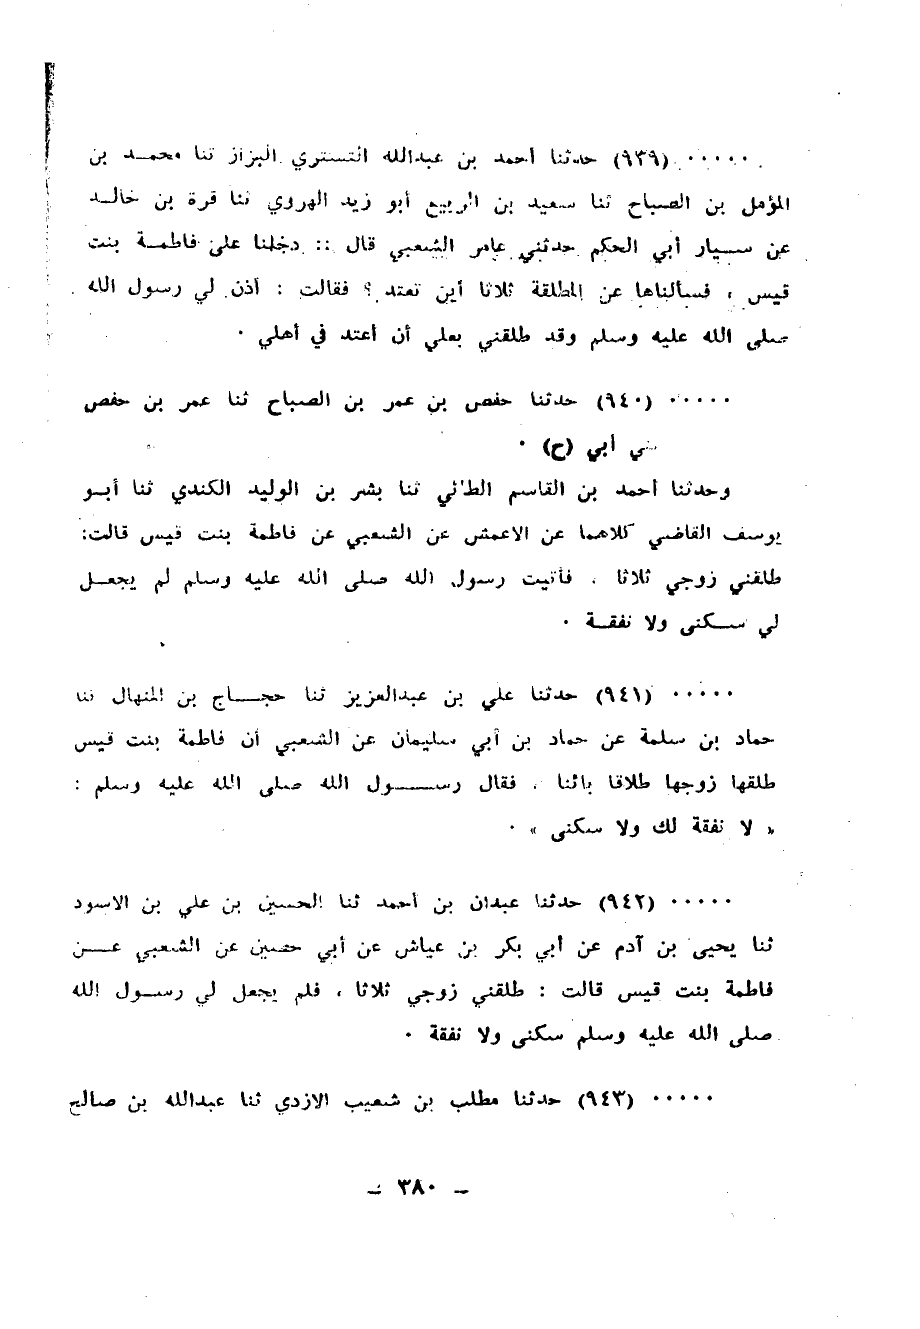 ..... (٩٣٩) حدثنا أحمد بن عبدالله التستري البزاز ثنا محمد بن
المؤمل بن الصباح ثنا سعيد بن الربيع أبو زيد الهروي ثنا قرة بن خالد
عن سيار أبي الحكم حدثني عامر الشعبي قال :: دخلنا على فاطمة بنت
قيس ، فسألناها عن المطلقة ثلاثا أين تعتد ؟ فقالت : أذن لي رسول الله
صلى الله عليه وسلم وقد طلقني بعلي أن أعتد في أهلي .
..... (٩٤٠) حدثنا حفص بن عمر بن الصباح ثنا عمر بن حفص
أبي (ح) .
وحدثنا أحمد بن القاسم الطائي ثنا بشر بن الوليد الكندي ثنا أبو
يوسف القاضي كلاهما عن الاعمش عن الشعبي عن فاطمة بنت قيس قالت:
طلقني زوجي ثلاثا ، فأتيت رسول الله صلى الله عليه وسلم لم يجعل
لي سكنى ولا نفقة .
..... (٩٤١) حدثنا علي بن عبدالعزيز ثنا حجاج بن المنهال ثنا
حماد بن سلمة عن حماد بن أبي سليمان عن الشعبي أن فاطمة بنت قيس
طلقها زوجها طلاقا بائنا ، فقال رسول الله صلى الله عليه وسلم :
« لا نفقة لك ولا سكنى » .
..... (٩٤٢) حدثنا عبدان بن أحمد ثنا الحسين بن علي بن الاسود
ثنا يحيى بن آدم عن أبي بكر بن عياش عن أبي حصين عن الشعبي عن
فاطمة بنت قيس قالت : طلقني زوجي ثلاثا ، فلم يجعل لي رسول الله
صلى الله عليه وسلم سكنى ولا نفقة .
..... (٩٤٣) حدثنا مطلب بن شعيب الازدي ثنا عبدالله بن صالح
- ٣٨٠ -